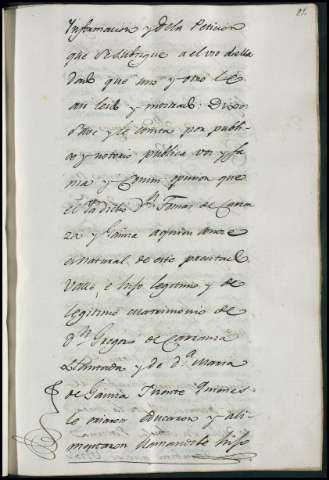 21.
Informacion y de la Peticion
que
que uno y otro le
an leido y mostrado: Dixo
save y le consta por publi-
co y notorio publica voz y fa-
ma y Comun opinion que
el dho Dn Tomas de Carra
za y Gauna a quien conoce
es natural de este
Valle, e hijo legitimo y de
legitimo matrimonio de
Dn Gregorio de Carranza
y de Da Maria
de Gauna Fuerte quienes
lo criaron educaron y ali-
mentaron llamandole hijo